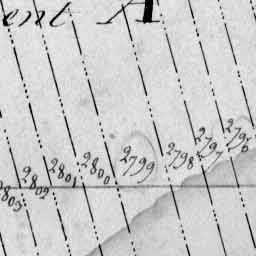 ent A
2803 2802 2801 2800 2799 2798 2797 2796